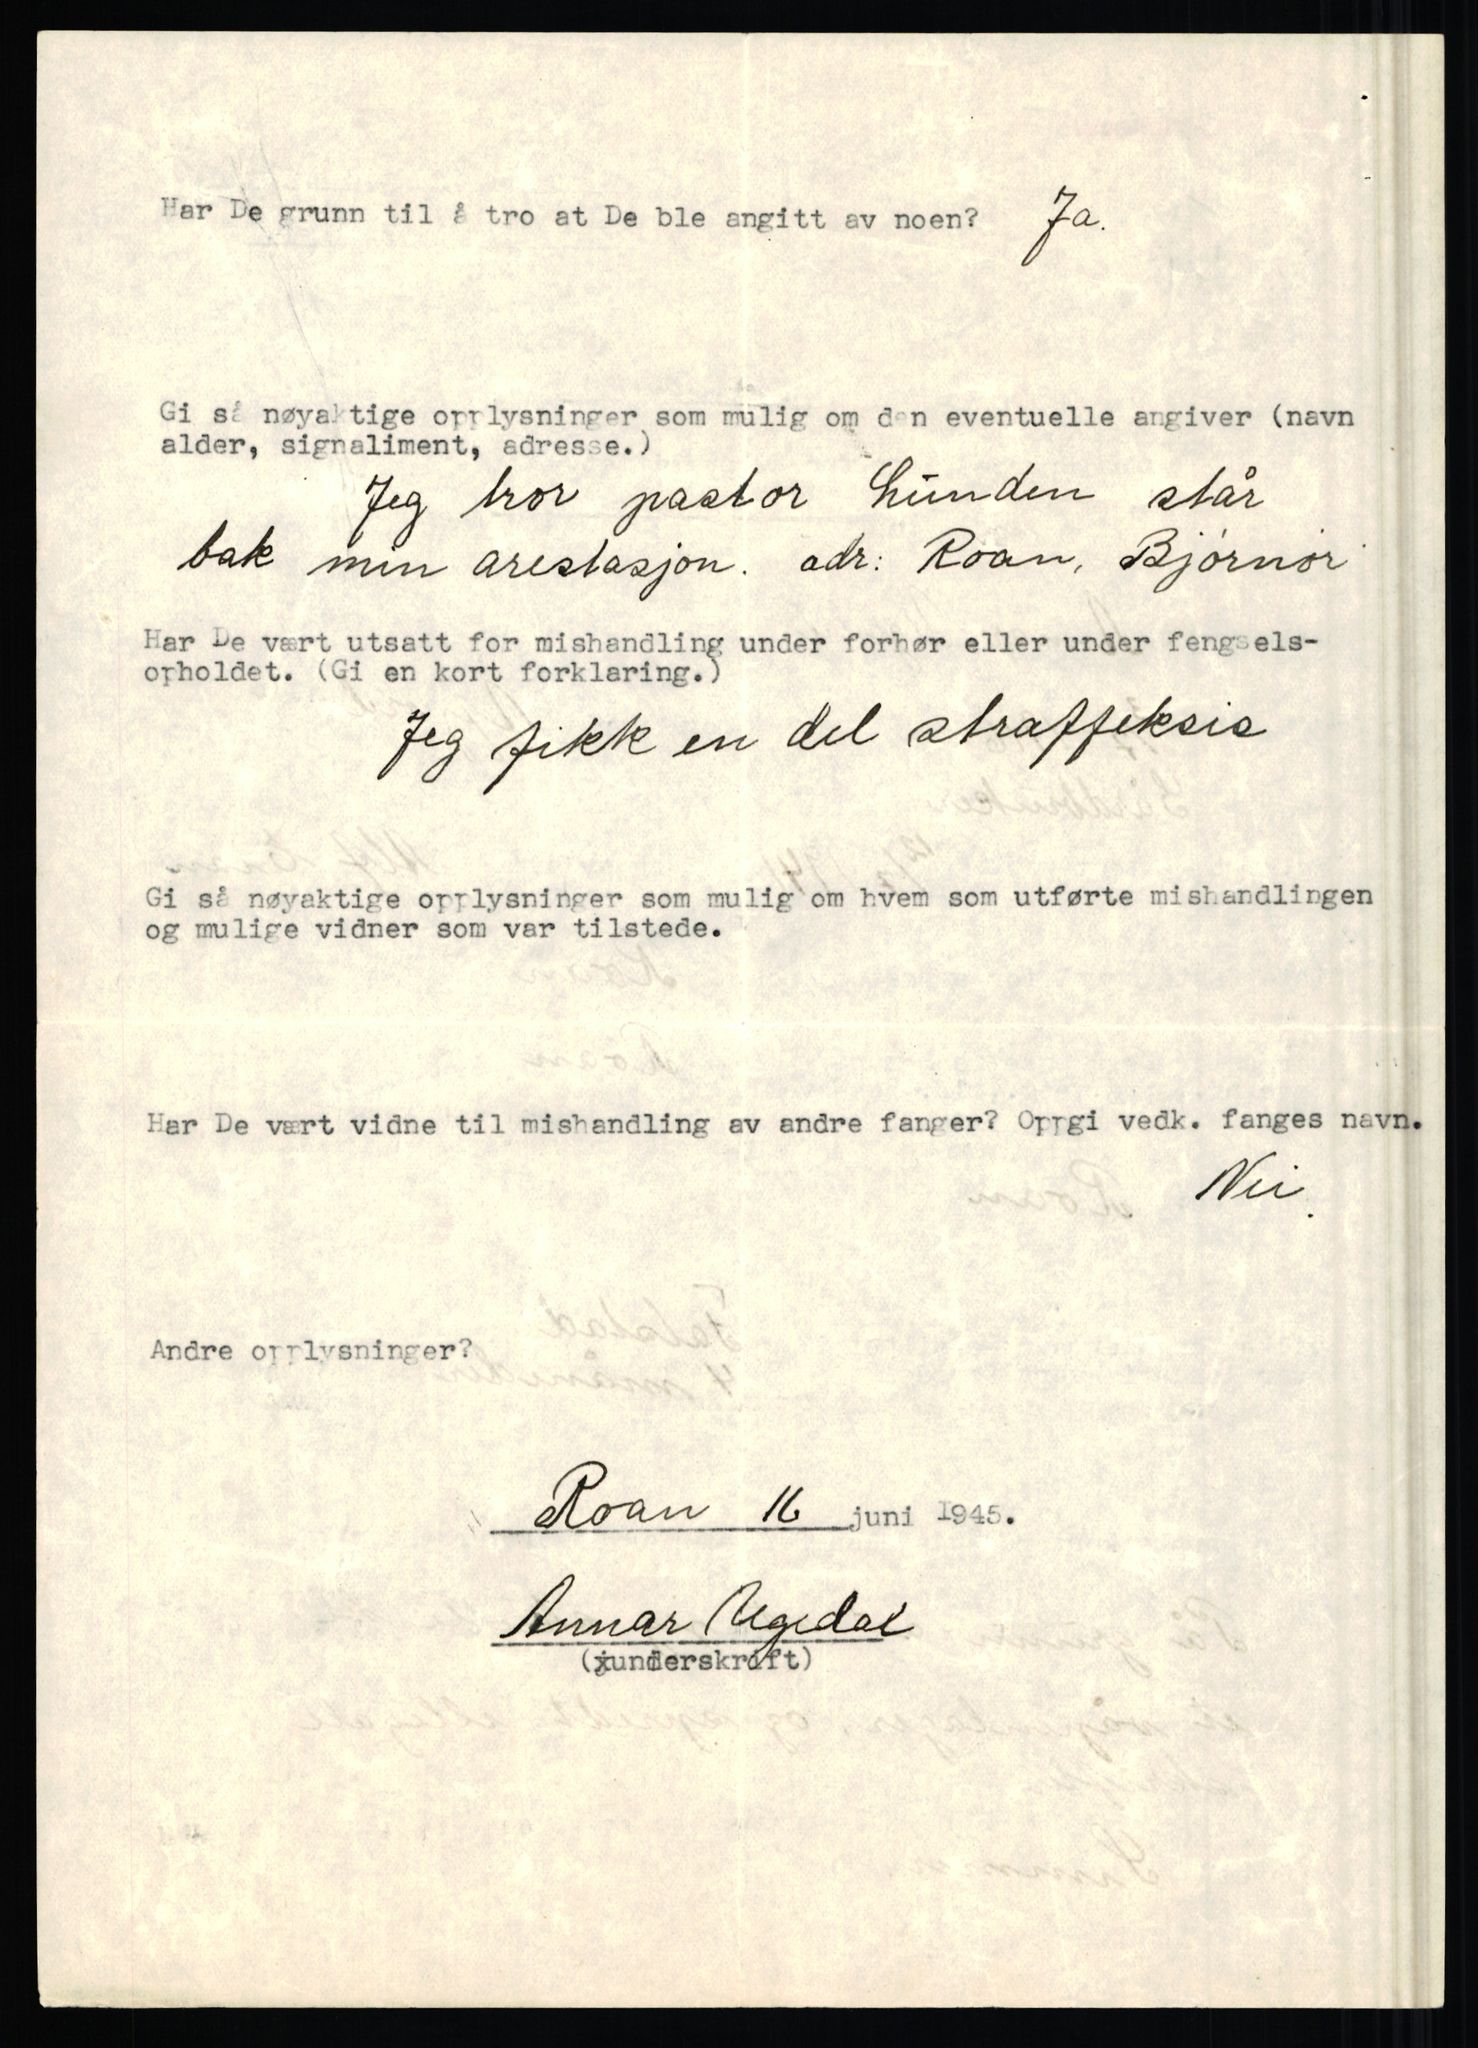 Har De grunn til å tro at De ble angitt av noen? Ja.
Gi så nøyaktige opplysninger som mulig om den eventuelle angiver (navn
alder, signaliment, adresse.)
Jeg tror pastor Lunden står
bak min arestasjon. adr: Roan, Bjørnør
Har De vært utsatt for mishandling under forhør eller under fengsels-
opholdet. (Gi en kort forklaring.)
Jeg fikk en del straffeksis
Gi så nøyaktige opplysninger som mulig om hvem som utførte mishandlingen
og mulige vidner som var tilstede.
Har De vært vidne til mishandling av andre fanger? Oppgi vedk. fanges navn.
Nei.
Andre opplysninger?
Roan 16 juni 1945.
Annar Ugedal
(underskrift)